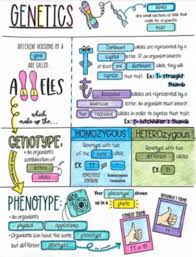 GENETICS
GENES
are small sections of DNA
that code for a
specific trait.
DIFFERENT VERSIONS OF A
GENE
ARE CALLED
ALLELES
which make up the...
T
Dominant alleles are represented by a
capital letter. An organism must
inherit one dominant allele to
express that trait. Ex: T= straight
thumb
t
Recessive alleles are represented by a
lowercase letter. An organism must inherit
two recessive alleles to express
trait. Ex: t=hitchhiker's thumb
GENOTYPE:
An organism's
combination of
alleles
HOMOZYGOUS
Genotype with two
of the same
alleles
Ex: TT or tt
HETEROZYGOUS
Genotype with two
different
alleles
Ex: Tt
PHENOTYPE:
An organism's
physical appearance
Organisms can have the same
phenotype but different
genotypes
Your phenotype shows
up in a photo
STRAIGHT THUMB
TT or Tt
tt